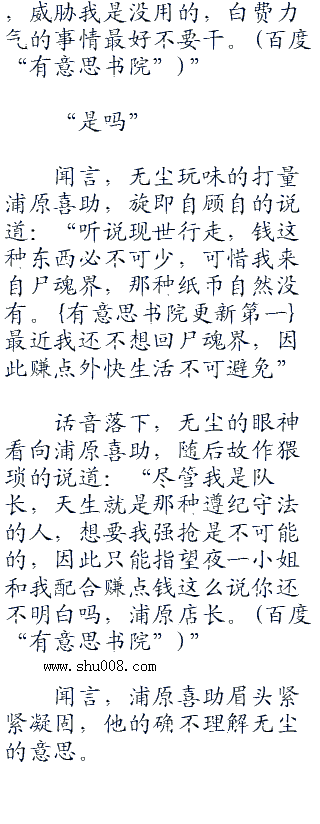 ，威胁我是没用的，白费力
气的事情最好不要干。(百度
“有意思书院”)”
“是吗”
闻言，无尘玩味的打量
浦原喜助，旋即自顾自的说
道：“听说现世行走，钱这
种东西必不可少，可惜我来
自尸魂界，那种纸币自然没
有。{有意思书院更新第一}
最近我还不想回尸魂界，因
此赚点外快生活不可避免”
话音落下，无尘的眼神
看向浦原喜助，随后故作猥
琐的说道：“尽管我是队
长，天生就是那种遵纪守法
的人，想要我强抢是不可能
的，因此只能指望夜一小姐
和我配合赚点钱这么说你还
不明白吗，浦原店长。(百度
“有意思书院”)”
www.shu008.com
闻言，浦原喜助眉头紧
紧凝固，他的确不理解无尘
的意思。